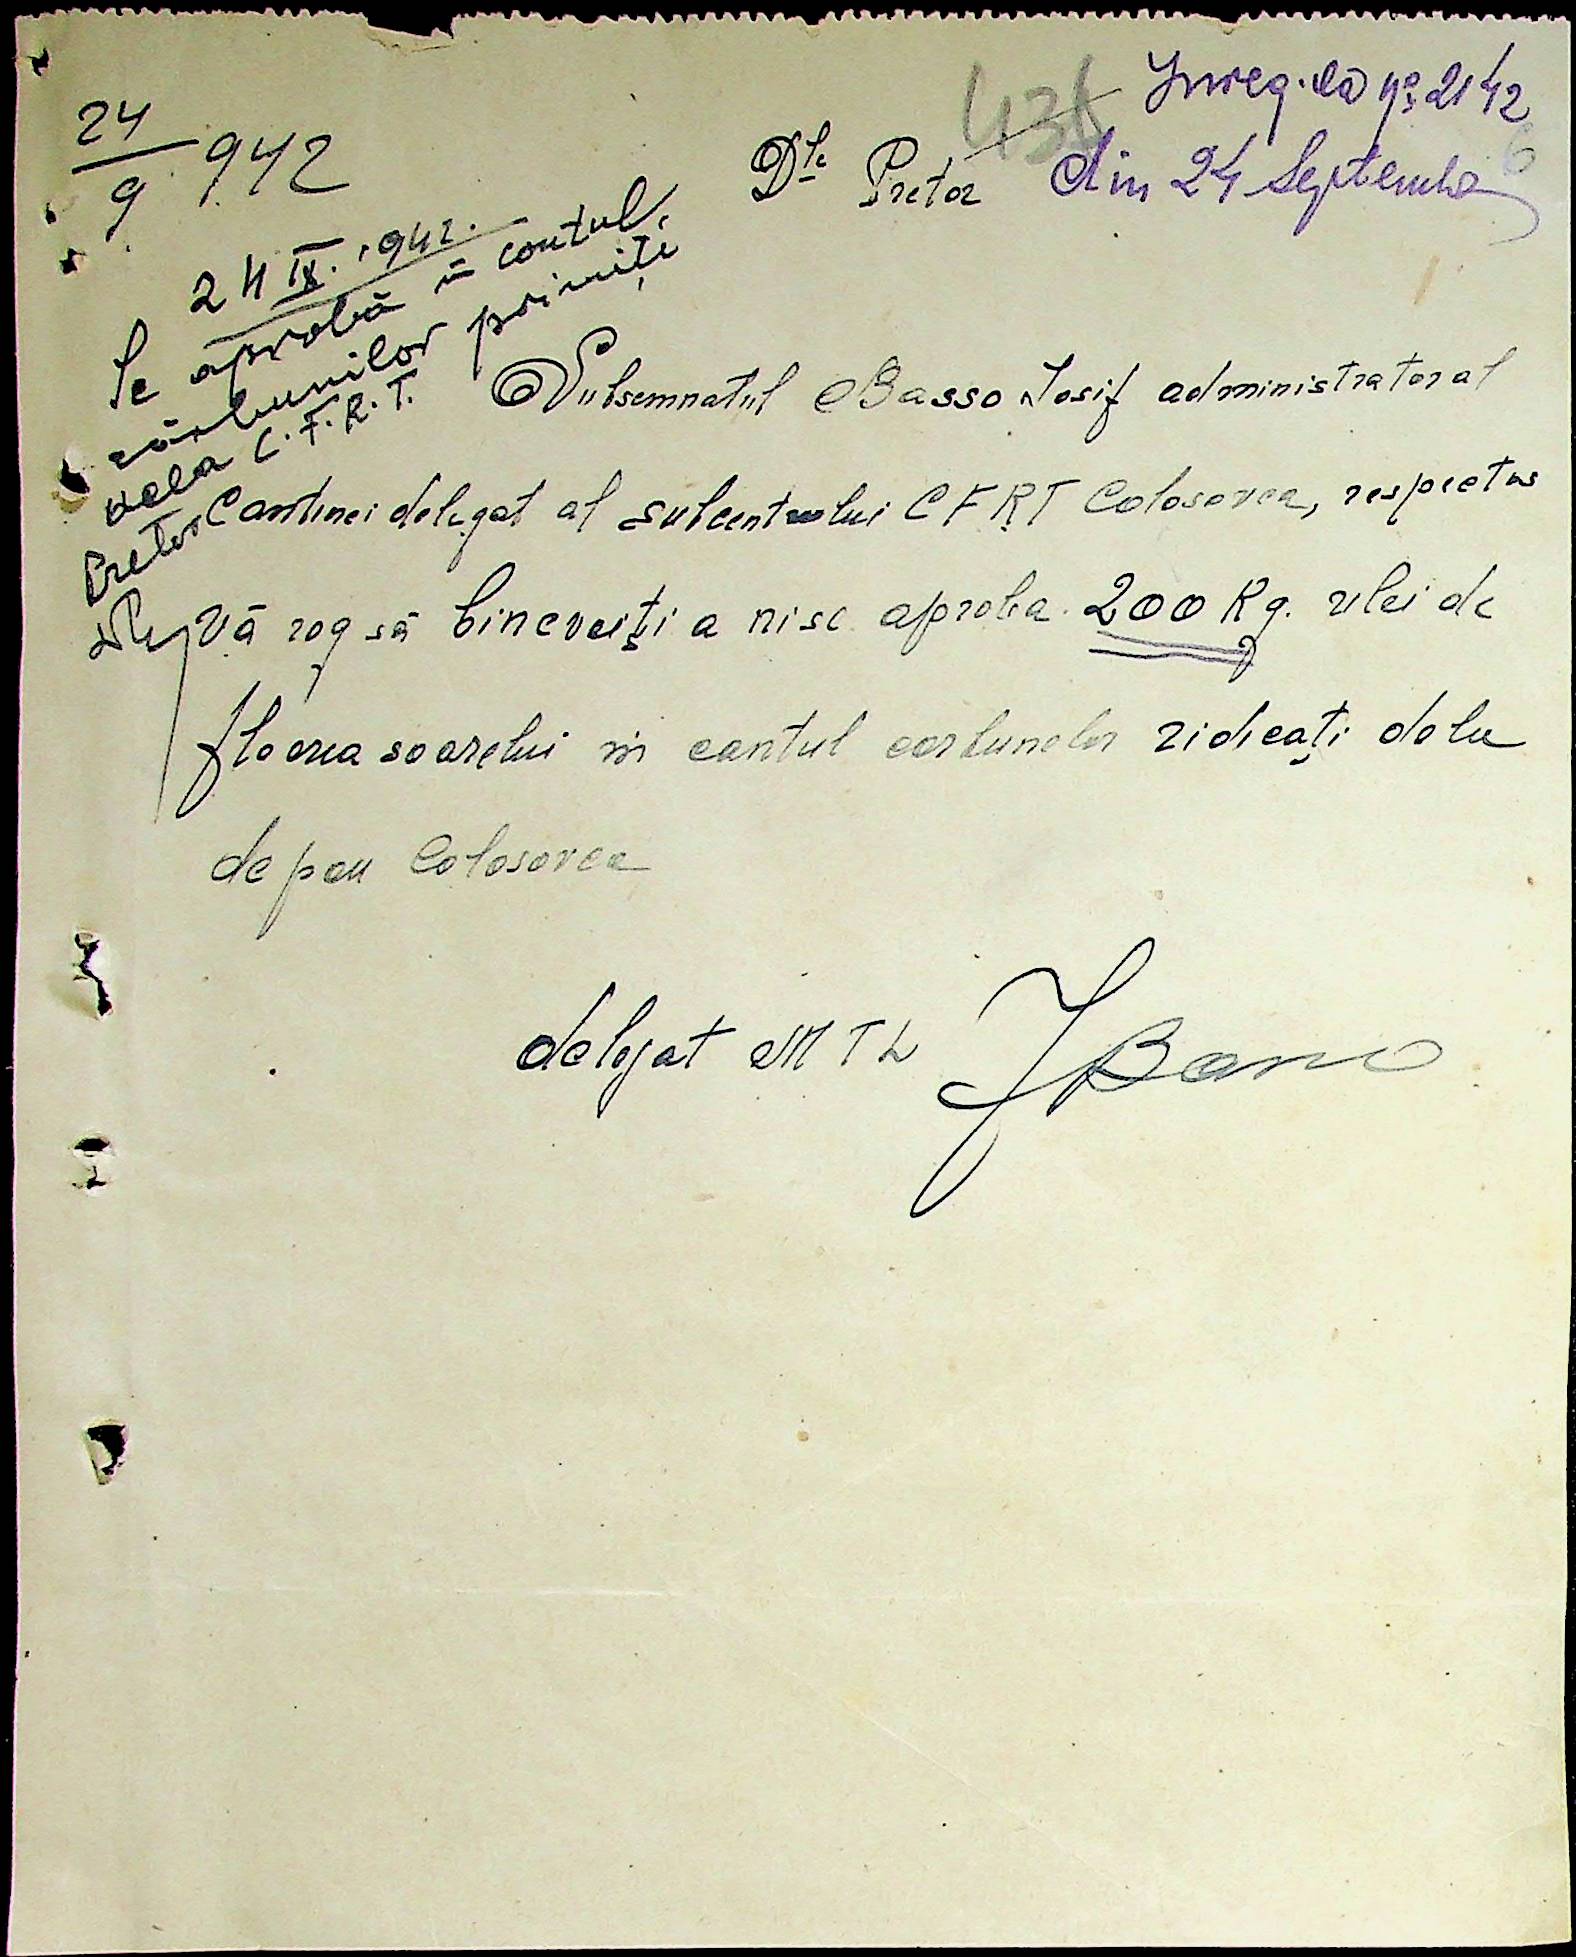 Inreg. la No 2142
din 24 Septembe
431
6
24/9 942
Dle Pretor
24 IX. 942.
Se aprobă în contul
cărbunilor primiți
dela C.F.R.T.
Pretor
Subsemnatul Basso Iosif administrator al
Cantinei delegat al subcentrului CFRT Colosovca, respectus
Vă rog să binevoiți a ni se aproba 200 Kg. ulei de
floorea soarelui în contul corbunelor ridicați dela
depou Colosovca
delegat MTL